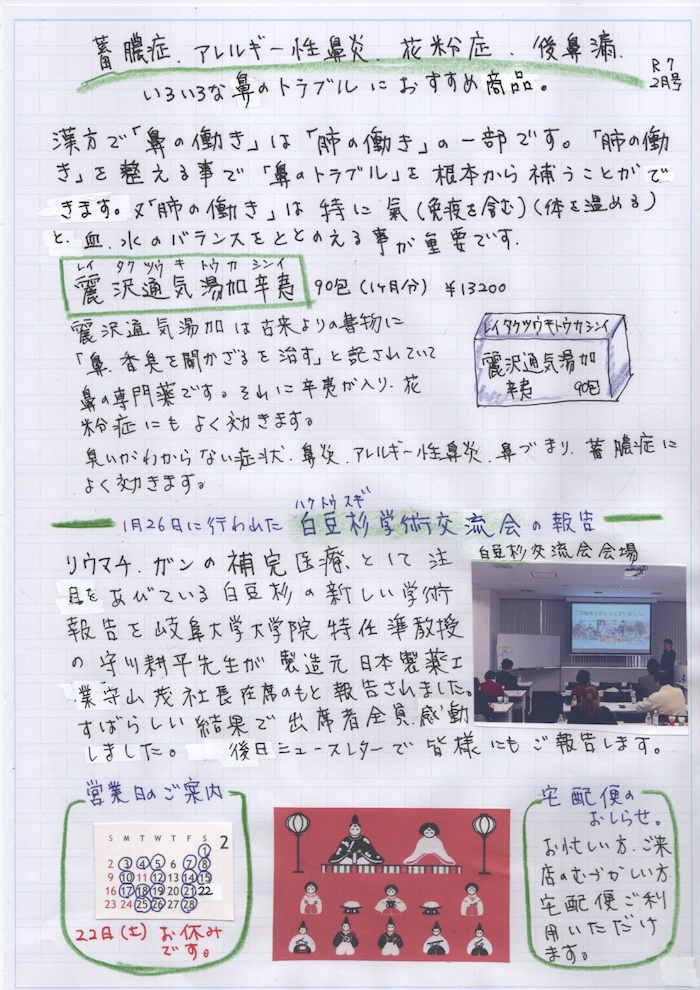 蓄膿症.アレルギー性鼻炎.花粉症.後鼻漏.
いろいろな鼻のトラブルにおすすめ商品。
R7
2月号
漢方で「鼻の働き」は「肺の働き」の一部です。「肺の働
き」を整える事で「鼻のトラブル」を根本から補うことがで
きます。又「肺の働き」は特に氣(免疫を含む)(体を温める)
と.血.水のバランスをととのえる事が重要です.
レイ タクツウ キ トウカ シンイ
麗沢通気湯加辛夷 90包(1ヶ月分) ¥13200
麗沢通気湯加は古来よりの書物に
「鼻.香臭を聞かざるを治す」と記されていて
鼻の専門薬です。それに辛夷が入り.花
粉症にもよく効きます。
臭いがわからない症状.鼻炎.アレルギー性鼻炎.鼻づまり.蓄膿症に
よく効きます。
レイタクツウキトウカシンイ
麗沢通気湯加
辛夷 90包
ハクトウスギ
1月26日に行われた 白豆杉学術交流会の報告
リウマチ.ガンの補完医療.として注
目をあびている白豆杉の新しい学術
報告を岐阜大学大学院特任準教授
の守川耕平先生が製造元日本製薬工
業守山茂社長在席のもと報告されました。
すばらしい結果で出席者全員感動
しました。 後日ニュースレターで皆様にもご報告します。
白豆杉交流会会場
営業日のご案内
2
S M T W T F S
1
2 3 4 5 6 7 8
9 10 11 12 13 14 15
16 17 18 19 20 21 22
23 24 25 26 27 28
22日(土)お休み
です。
宅配便の
おしらせ。
お忙しい方.ご来
店のむづかしい方.
宅配便ご利
用いただけ
ます。